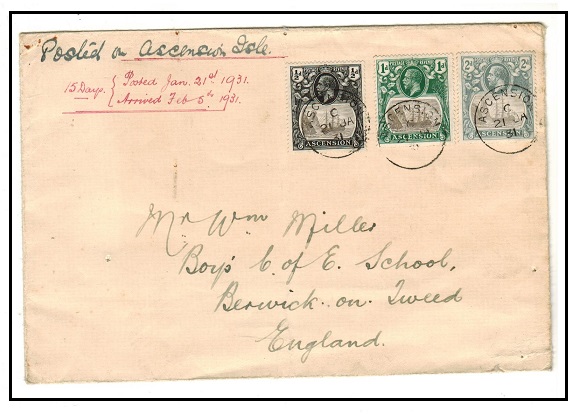 Posted on Ascension Isle.
15 Days. { Posted Jan. 21st 1931.
Arrived Feb 5th 1931.
½d ½d
ASCENSION
1d 1d
ASCENSION
2d 2d
ASCENSION
ASCENSION
C
21 JA
31
Mr Wm Miller
Boys' C. of E. School,
Berwick. on. Tweed
England.